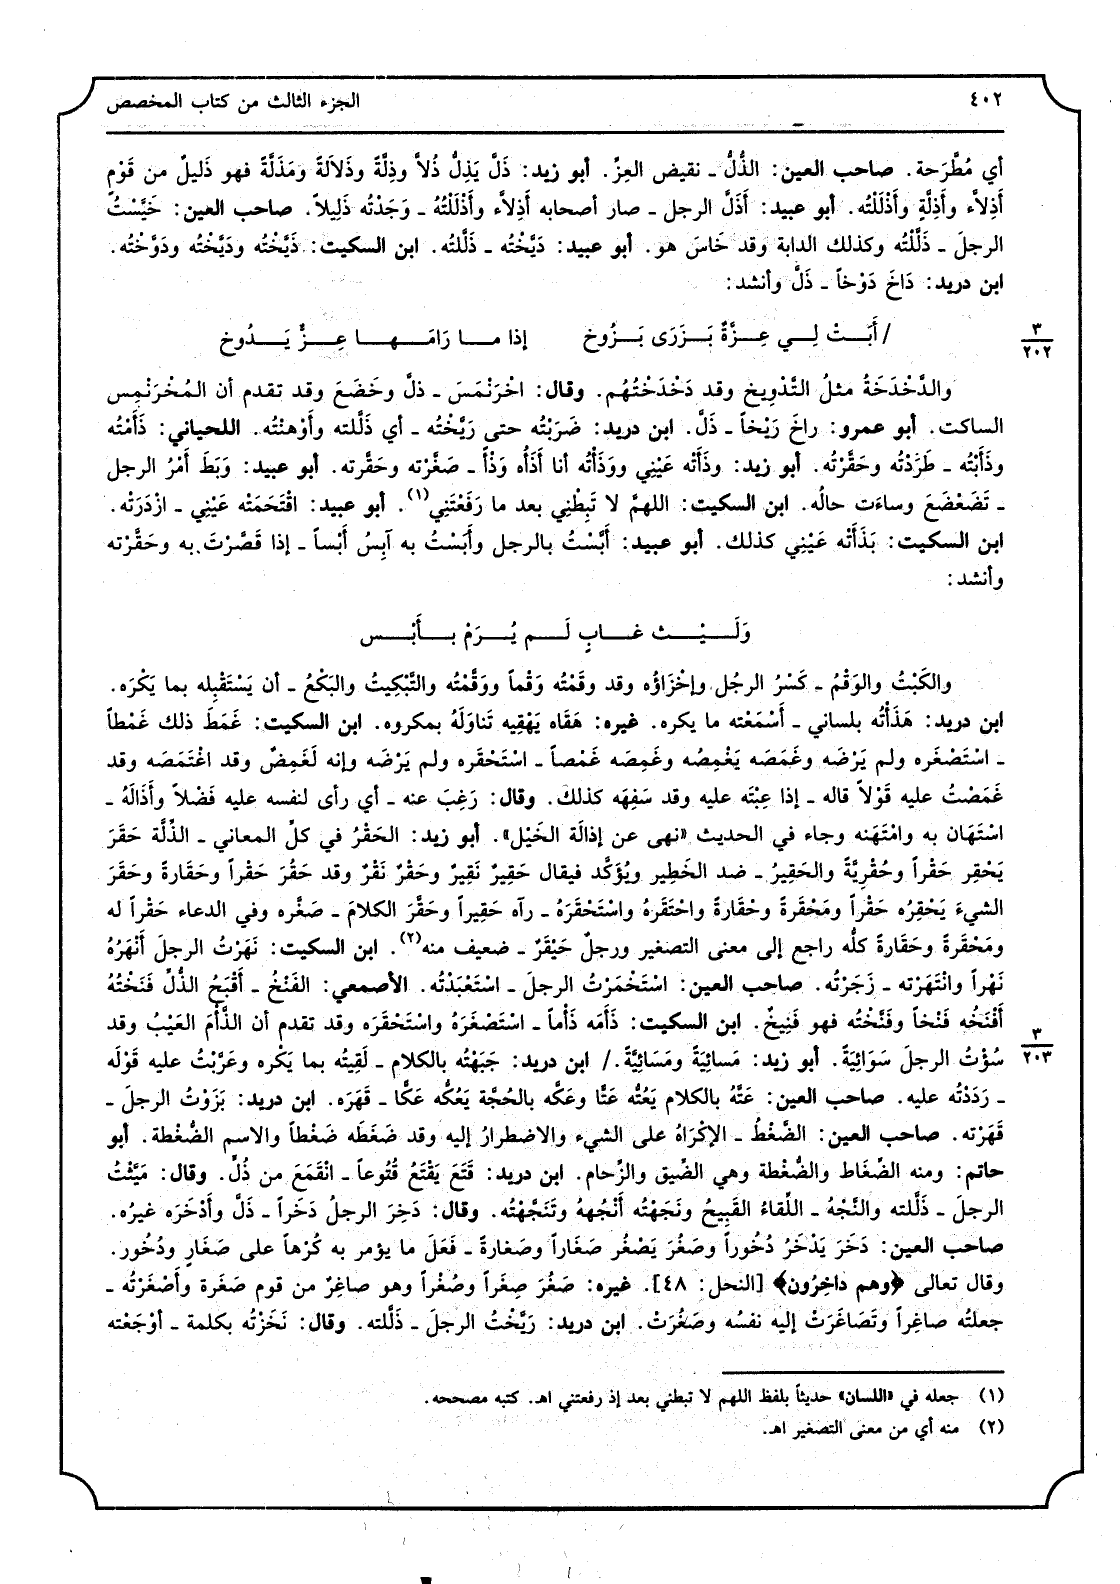 ٤٠٢ الجزء الثالث من كتاب المخصص
أي مُطَّرَحة. صاحب العين: الذُّلُّ ـ نقيض العِزِّ. أبو زيد: ذَلَّ يَذِلُّ ذُلاًّ وذِلَّةً وذَلاَلةً ومَذَلَّةً فهو ذَليلٌ من قَوْمٍ
أَذِلاَّء وأَذِلَّةٍ وأَذْلَلْتُه. أبو عبيد: أَذَلَّ الرجل ـ صار أصحابه أَذِلاَّء وأَذْلَلْتُهُ ـ وَجَدْته ذَلِيلاً. صاحب العين: خَيَّسْتُ
الرجلَ ـ ذَلَّلْتُه وكذلك الدابة وقد خَاسَ هو. أبو عبيد: ذَيَّخْته ـ ذَلَّلته. ابن السكيت: ذَيَّخْتُه ودَيَّخْتُه ودَوَّخْتُه.
ابن دريد: دَاخَ دَوْخاً ـ ذَلَّ وأنشد:
/ أَبَــتْ لِــي عِــزَّةٌ بَــزَرَى بَــزُوخ إذا مــا رَامَــهــا عِــزٌّ يَــدُوخ
٣
٢٠٢
والدَّخْدَخَةُ مثلُ التَّدْوِيخ وقد دَخْدَخْتُهُم. وقال: اخْرَنْمَسَ ـ ذلَّ وخَضَعَ وقد تقدم أن المُخْرَنْمِس
الساكت. أبو عمرو: راخَ رَيْخاً ـ ذَلَّ. ابن دريد: ضَرَبْتُه حتى رَيَّخْتُه ـ أي ذَلَّلته وأَوْهَنْتُه. اللحياني: ذَأَمْتُه
وذَأَبْتُه ـ طَرَدْتُه وحَقَرْتُه. أبو زيد: وذَأَتْه عَيْنِي ووَذَأْتُه أنا أَذَأُه وَذْأ ـ صَغَّرْته وحَقَّرته. أبو عبيد: وَبَطَ أَمْرُ الرجل
ـ تَضَعْضَعَ وساءَت حالُه. ابن السكيت: اللهمَّ لا تَبِطْنِي بعد ما رَفَعْتَنِي(١). أبو عبيد: اقْتَحَمَتْه عَيْنِي ـ ازْدَرَتْه.
ابن السكيت: بَذَأَتْه عَيْنِي كذلك. أبو عبيد: أَبَّسْتُ بالرجل وأَبَسْتُ به آبِسُ أَبْساً ـ إذا قَصَّرْتَ به وحَقَّرْته
وأنشد:
وَلَــيْــثِ غــابٍ لَــم يُــرَمْ بــأَبْــس
والكَبْتُ والوَقْمُ ـ كَسْرُ الرجُل وإخْزَاؤُه وقد وقَمْتُه وَقْماً ووَقَّمْتُه والتَّبْكِيتُ والبَكْعُ ـ أن يَسْتَقْبِله بما يَكْرَه.
ابن دريد: هَذَأْتُه بلساني ـ أَسْمَعْته ما يكره. غيره: هَقَاه يَهْقِيه تَناوَلَهُ بمكروه. ابن السكيت: غَمَطَ ذلك غَمْطاً
ـ اسْتَصْغَره ولم يَرْضَه وغَمَصَه يَغْمِصُه وغَمِصَه غَمْصاً ـ اسْتَحْقَره ولم يَرْضَه وإنه لَغَمِصٌ وقد اغْتَمَصَه وقد
غَمَصْتُ عليه قَوْلاً قاله ـ إذا عِبْتَه عليه وقد سَفِهَه كذلك. وقال: رَغِبَ عنه ـ أي رأى لنفسه عليه فَضْلاً وأَذَالَهُ ـ
اسْتَهَان به وامْتَهَنه وجاء في الحديث «نهى عن إذالَة الخَيْل». أبو زيد: الحَقْرُ في كلِّ المعاني ـ الذِّلَّة حَقَرَ
يَحْقِر حَقْراً وحُقْرِيَّةً والحَقِيرُ ـ ضد الخَطِير ويُؤَكَّد فيقال حَقِيرٌ نَقِيرٌ وحَقْرٌ نَقْرٌ وقد حَقُرَ حَقْراً وحَقَارة وحَقَرَ
الشيءَ يَحْقِرُه حَقْراً ومَحْقَرةً وحْقَارةً واحْتَقَرهُ واسْتَحْقَرَهُ ـ رآه حَقِيراً وحَقَّرَ الكلامَ ـ صَغَّره وفي الدعاء حَقْراً له
ومَحْقَرةً وحَقَارةً كلُّه راجع إلى معنى التصغير ورجلٌ حَيْقَرٌ ـ ضعيف منه(٢). ابن السكيت: نَهَرْتُ الرجلَ أَنْهَرُهُ
نَهْراً وانْتَهَرْته ـ زَجَرْتُه. صاحب العين: اسْتَخْمَرْتُ الرجلَ ـ اسْتَعْبَدْتُه. الأصمعي: الفَنْخُ ـ أَقْبَحُ الذُّلِّ فَنَخْتُهُ
أَفْنَخُه فَنْخاً وفَنَّخْتُه فهو فَنِيخٌ. ابن السكيت: ذَأَمَه ذَأْماً ـ اسْتَصْغَرَهُ واسْتَحْقَرَه وقد تقدم أن الذَّأْمَ العَيْبُ وقد
سُؤْتُ الرجلَ سَوَائِيَةً. أبو زيد: مَسائِيَةً ومَسَائِيَّةً./ ابن دريد: جَبَهْتُه بالكلام ـ لَقِيتُه بما يَكْره وعَرَّبْتُ عليه قَوْلَه
٣
٢٠٣
ـ رَدَدْتُه عليه. صاحب العين: عَتَّهُ بالكلام يَعُتُّه عَتًّا وعَكَّه بالحُجَّة يَعُكُّه عَكَّا ـ قَهَرَه. ابن دريد: بَزَوْتُ الرجلَ ـ
قَهَرْته. صاحب العين: الضَّغْطُ ـ الإكْرَاهُ على الشيء والاضطرارُ إليه وقد ضَغَطَه ضَغْطاً والاسم الضُّغْطة. أبو
حاتم: ومنه الضِّغَاط والضُّغْطة وهي الضِّيق والزِّحام. ابن دريد: قَتَعَ يَقْتَعُ قُتُوعاً ـ انْقَمَعَ من ذُلٍّ. وقال: مَيَّثْتُ
الرجلَ ـ ذَلَّلته والنَّجْهُ ـ اللِّقاءُ القَبِيحُ ونَجَهْتُه أَنْجُههُ وتَنَجَّهْتُه. وقال: دَخِرَ الرجلُ دَخَراً ـ ذَلَّ وأَدْخَرَه غيرُه.
صاحب العين: دَخَرَ يَدْخَرُ دُخُوراً وصَغُرَ يَصْغُر صَغَاراً وصَغارةً ـ فَعَلَ ما يؤمر به كُرْهاً على صَغَارٍ ودُخُور.
وقال تعالى ﴿وهم داخِرُون﴾ [النحل: ٤٨]. غيره: صَغُرَ صِغَراً وصُغْراً وهو صاغِرٌ من قوم صَغَرة وأَصْغَرْتُه ـ
جعلتُه صاغِراً وتَصَاغَرَتْ إليه نفسُه وصَغُرَتْ. ابن دريد: رَيَّخْتُ الرجلَ ـ ذَلَّلته. وقال: نَخَزْتُه بكلمة ـ أوْجَعْته
(١) جعله في «اللسان» حديثاً بلفظ اللهم لا تبطني بعد إذ رفعتني اهـ. كتبه مصححه.
(٢) منه أي من معنى التصغير اهـ.